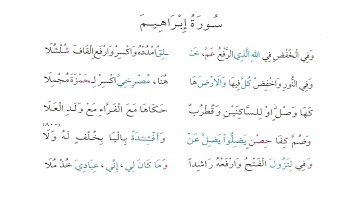 سُورَةُ إِبْرَاهِيمَ
وَفِي الْخَفْضِ فِي اللهِ الَّذِي الرَّفْعُ عَمَّ، خَـ ـلِقُ امْدُدْهُ وَاكْسِرْ وَارْفَعِ الْقَافَ شُلْشُلَا
وَفِي النُّورِ وَاخْفِضْ كُلَّ فِيهَا وَالَارْضَ هَا هُنَا، مُصْرِخِيَّ اكْسِرْ لِـحَمْزَةَ مُجْمِلَا
كَهَا وَصْلٍ اوْ لِلسَّاكِنَيْنِ وَقُطْرُبٌ حَكَاهَا مَعَ الْفَرَّاءِ مَعْ وَلَدِ الْعَلَا
وَضُمَّ كِفَا حِصْنٍ يَضِلُّوا يَضِلَّ عَنْ وَأَفْئِدَةً بِالْيَا بِخُلْفٍ لَهُ وَلَا (٨٠٠)
وَفِي لِتَزُولَ الْفَتْحُ وَارْفَعْهُ رَاشِدًا وَمَا كَانَ لِي، إِنِّي، عِبَادِيَ خُذْ مُلَا